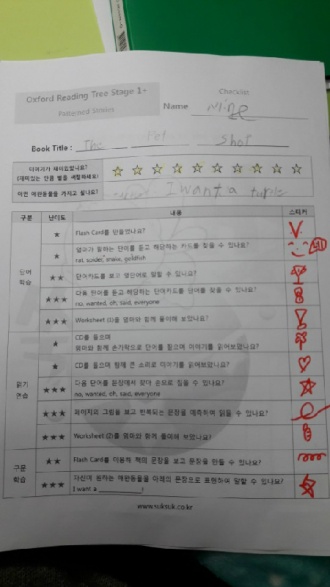 Oxford Reading Tree Stage 1+
Patterned Stories
Checklist
Name
Book Title : The Pet Shop
이야기가 재미있었나요?
(재미있는 만큼 별을 색칠하세요)
☆ ☆ ☆ ☆ ☆ ☆ ☆ ☆ ☆ ☆
어떤 애완동물을 가지고 싶나요?
I want a
구분 난이도 내용 스티커
단어
학습
★ Flash Card를 만들었나요?
★ 엄마가 말하는 단어를 듣고 해당하는 카드를 찾을 수 있나요?
rat, spider, snake, goldfish
★★ 단어카드를 보고 영단어로 말할 수 있나요?
★★★ 다음 단어를 듣고 해당하는 단어카드를 찾을 수 있나요?
no, wanted, oh, said, everyone
★★★ Worksheet (1)을 엄마와 함께 풀어봐 보았나요?
읽기
연습
★ CD를 들으며
엄마와 함께 손가락으로 단어를 짚으며 이야기를 읽어보았나요?
★ CD를 들으며 함께 큰 소리로 이야기를 읽어보았나요?
★★★ 다음 단어를 문장에서 찾아 손으로 짚을 수 있나요?
no, wanted, oh, said, everyone
★★★ 페이지의 그림을 보고 반복되는 문장을 예측하며 읽을 수 있나요?
★★★ Worksheet (2)를 엄마와 함께 풀어봐 보았나요?
구문
학습
★★ Flash Card를 이용해 책의 문장을 보고 문장을 만들 수 있나요?
★★★ 자신이 원하는 애완동물을 아래의 문장으로 표현하여 말할 수 있나요?
I want a ________!